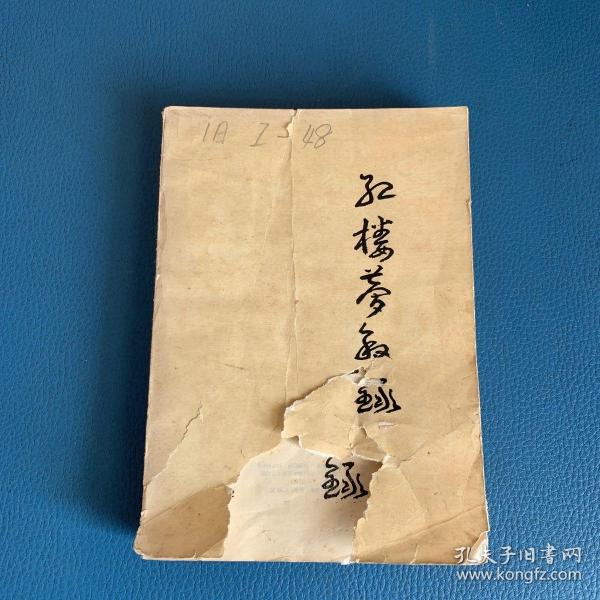 1A I-48
红楼梦叙录
录
孔夫子旧书网
www.kongfz.com